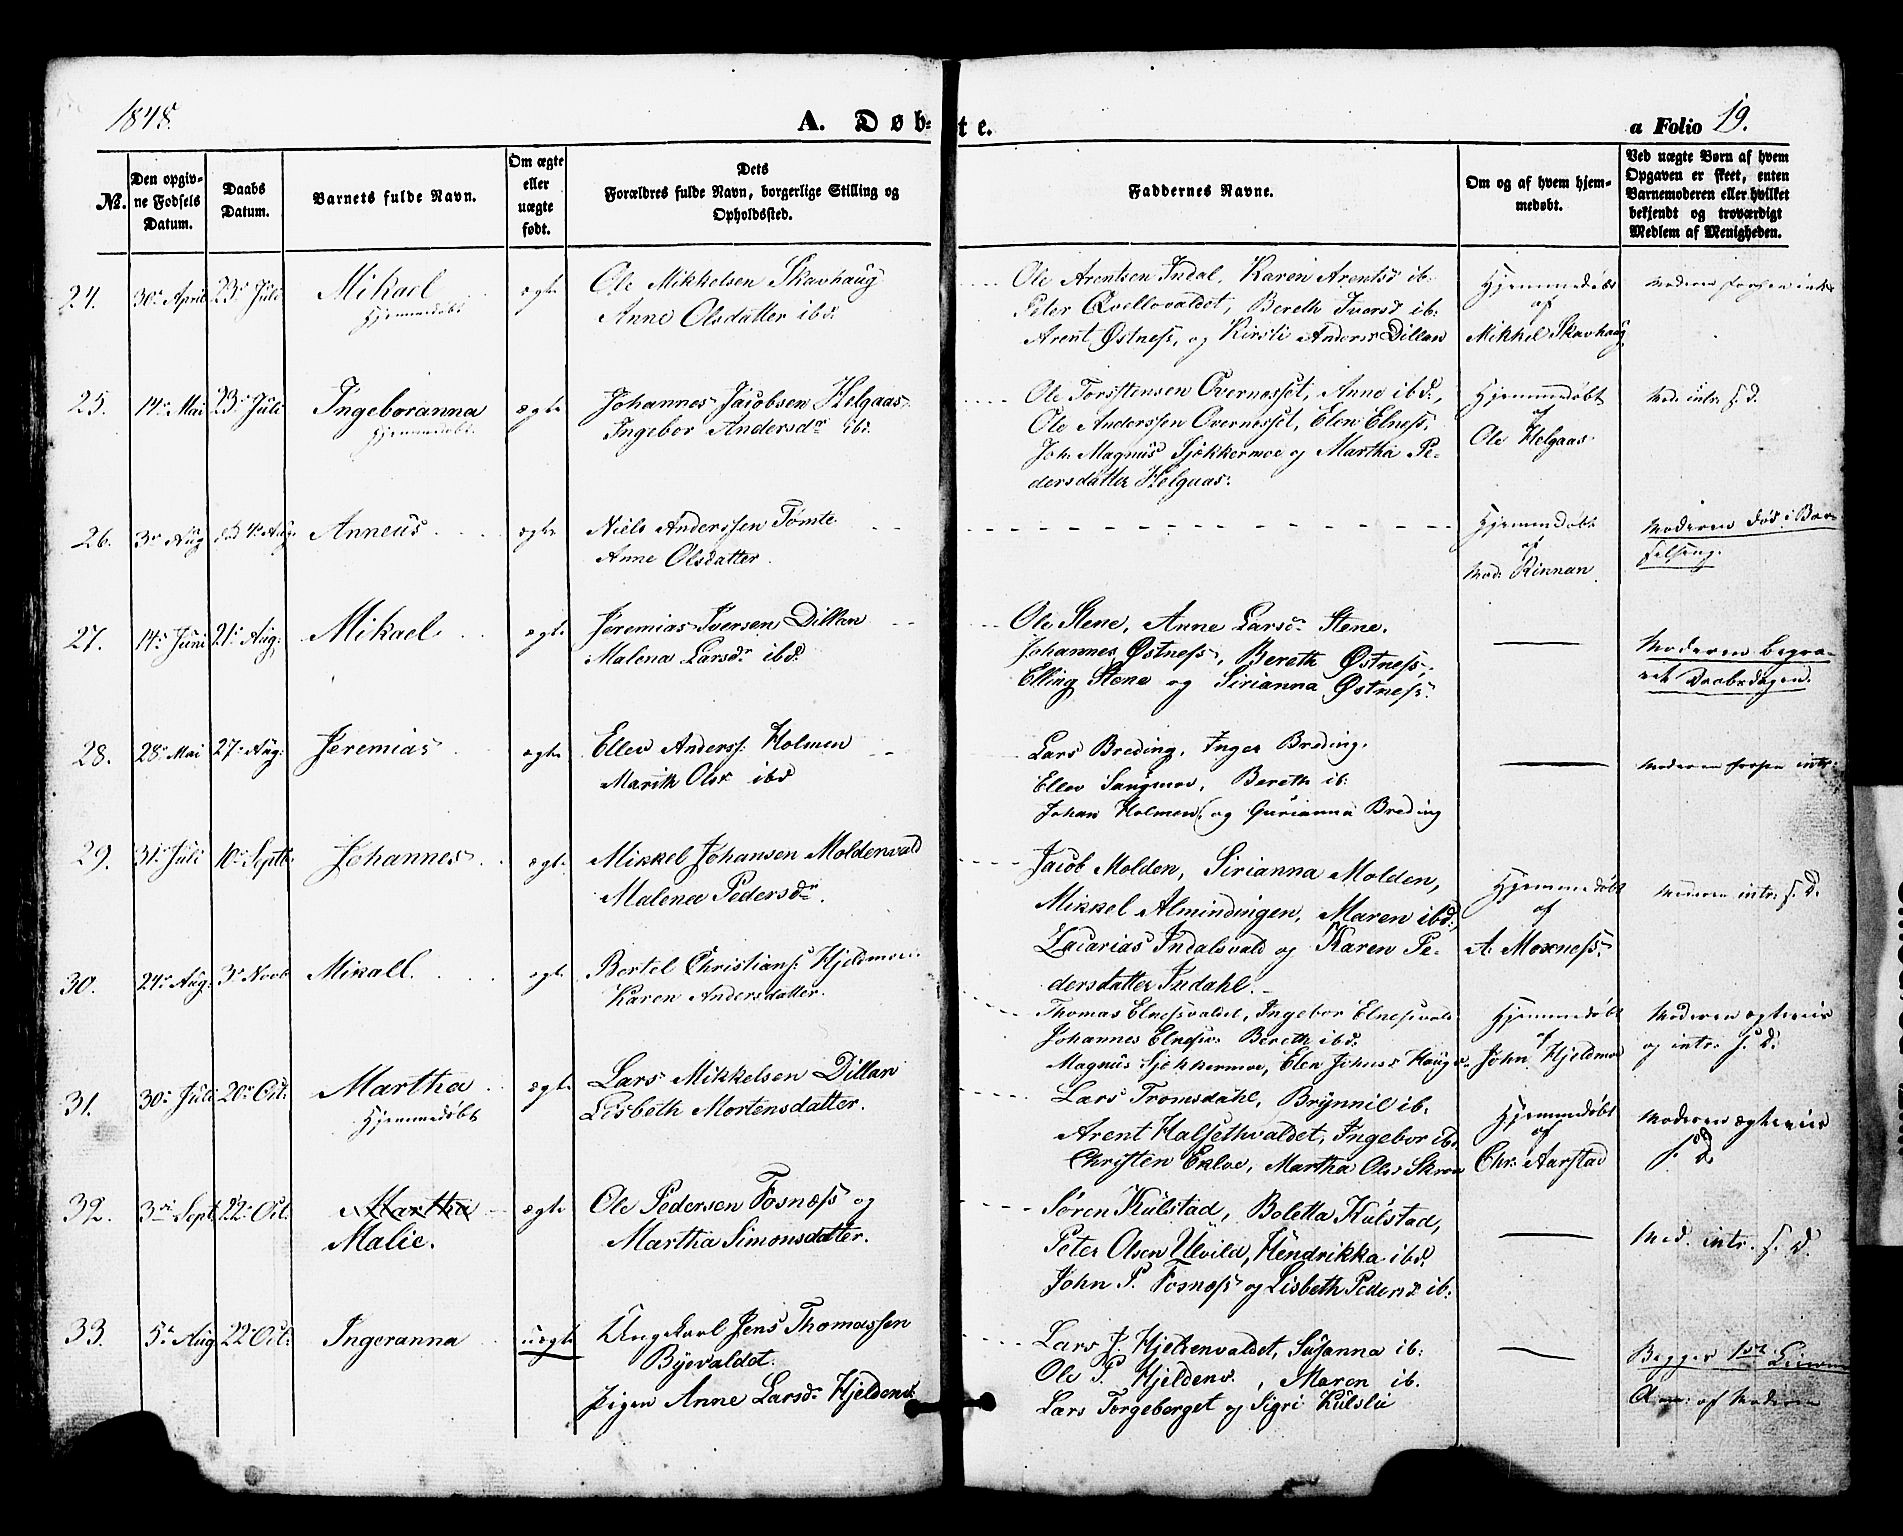 1848.
A. Døb-
te.
a Folio 19.
№.
Den opgiv-
ne Fødsels
Datum.
Daabs
Datum.
Barnets fulde Navn.
Om ægte
eller
uægte
født.
Dets
Forældres fulde Navn, borgerlige Stilling og
Opholdssted.
Faddernes Navne.
Om og af hvem hjem-
medøbt.
Ved uægte Børn af hvem
Opgaven er skeet, enten
Barnemoderen eller hvilket
bekjendt og troværdigt
Medlem af Menigheden.
24. 30te April 23de Juli Mikael ægte Ole Mikkelsen Skavhaug
Hjemmedøbt
Anne Olsdatter ibd.
Ole Arentsen Indal, Karen Arentsd ib.
Peter Qvellovaldet, Bereth Iversd ib:
Arent Østness, og Kirsti Anders Dillan
Hjemmedøbt
af
Mikkel Skavhaug
Moderen
25. 14de Mai 23de Juli Ingeboranna ægte Johannes Jacobsen Helgaas
Hjemmedøbt.
Ingebor Andersdr ibd.
Ole Torstensen Overnesset, Anne ibd.,
Ole Anderssen Overnesset, Elen Elness,
Joh. Magnus Sjøkkermoe og Martha Pe-
dersdatter Helgaas.
Hjemmedøbt
af
Ole Helgaas.
Mod. intr. s. D.
26. 3de Aug død 4de Aug Anneus ægte Niels Anderssen Tømte
Anne Olsdatter.
Hjemmedøbt
af
Mad: Rinnan
Moderen død i Bar-
selseng.
27. 14de Juni 21de Aug: Mikael ægte Jeremias Iversen Dillan
Malena Larsdr ibd.
Ole Stene, Anne Larsdr Stene.
Johannes Østness, Bereth Østness,
Elling Stene og Sirianna Østness.
Moderen begra-
vet Daabsdagen.
28. 28de Mai 27de Aug: Jeremias ægte Ellev Anderss: Holmen
Marith Olsd ibd
Lars Breding, Inger Breding.
Ellev Saugmoe, Bereth ib:
Johan Holmen, og Gurianna Breding
Moderen intr:
29. 31te Juli 10de Septb: Johannes ægte Mikkel Johansen Moldenvald
Malena Pedersdr.
Jacob Molden, Sirianna Molden,
Mikkel Almindingen, Maren ibd,
Zacarias Indalsvald og Karen Pe-
dersdatter Indahl.
Hjemmedøbt
af
A. Moxness.
Moderen intr. s. D.
30. 24de Aug. 3de Novb Mikall ægte Bertel Christians: Hjeldmoe
Karen Andersdatter.
Thomas Elnessvaldet, Ingebor Elnessvald
Johannes Elnessv. Bereth ibd.
Magnus Sjøkkermoe, Elen Johnsd Haugv.
Hjemmedøbt
af
John Hjeldmo
Moderen
og intr. s. D.
31. 30te Juli 20de Oct: Martha ægte Lars Mikkelsen Dillan
Hjemmedøbt
Lisbeth Mortensdatter.
Lars Tromsdahl, Brynnil ib.
Arent Halsethvaldet, Ingebor ibd
Christen Ekloe, Martha Olsd
Hjemmedøbt
af
Chr. Aarstad
Moderen
s. D
32. 3die Sept. 22de Oct. Martha ægte Ole Pedersen Fosness og
Malie.
Martha Simonsdatter.
Søren Kulstad, Boletta Kulstad,
Peter Olsen Ulvild, Hendrikka ibd.
John P. Fosness og Lisbeth Pedersd ib:
Mod. intr. s. D.
33. 5te Aug 22de Oct. Ingeranna uægte Ungkarl Jens Thomassen
Byevaldet.
Pigen Anne Larsdr Hjeldenv.
Lars J. Hjeldenvaldet, Susanna ib:
Ole P. Hjeldenv., Maren ib.
Lars Torgeberget og Sigri Kulsli
Begges 1ste
af Moderen